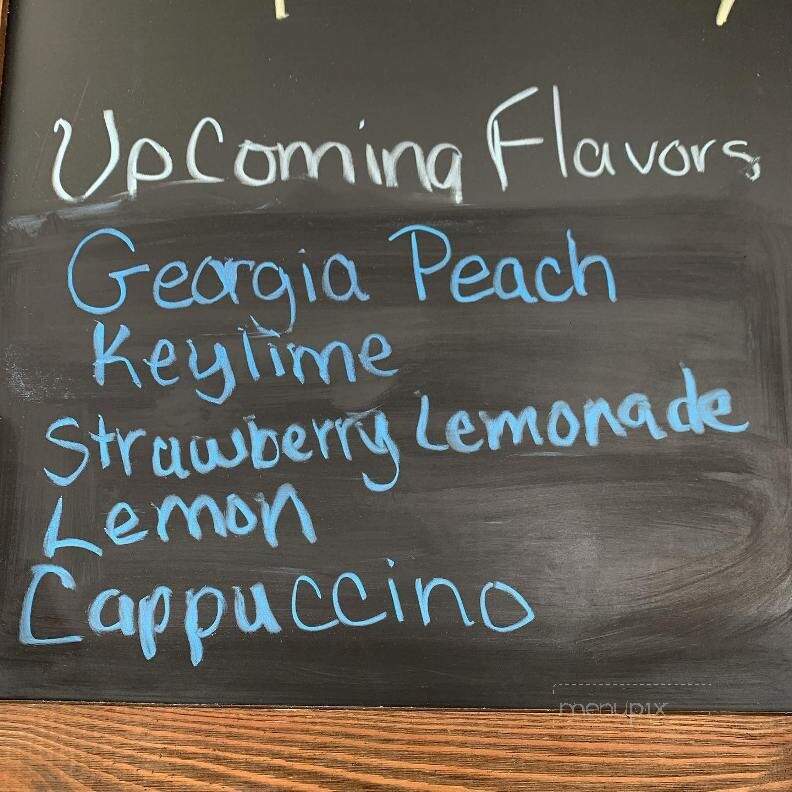 UpComing Flavors
Georgia Peach
Keylime
Strawberry Lemonade
Lemon
Cappuccino
menupix